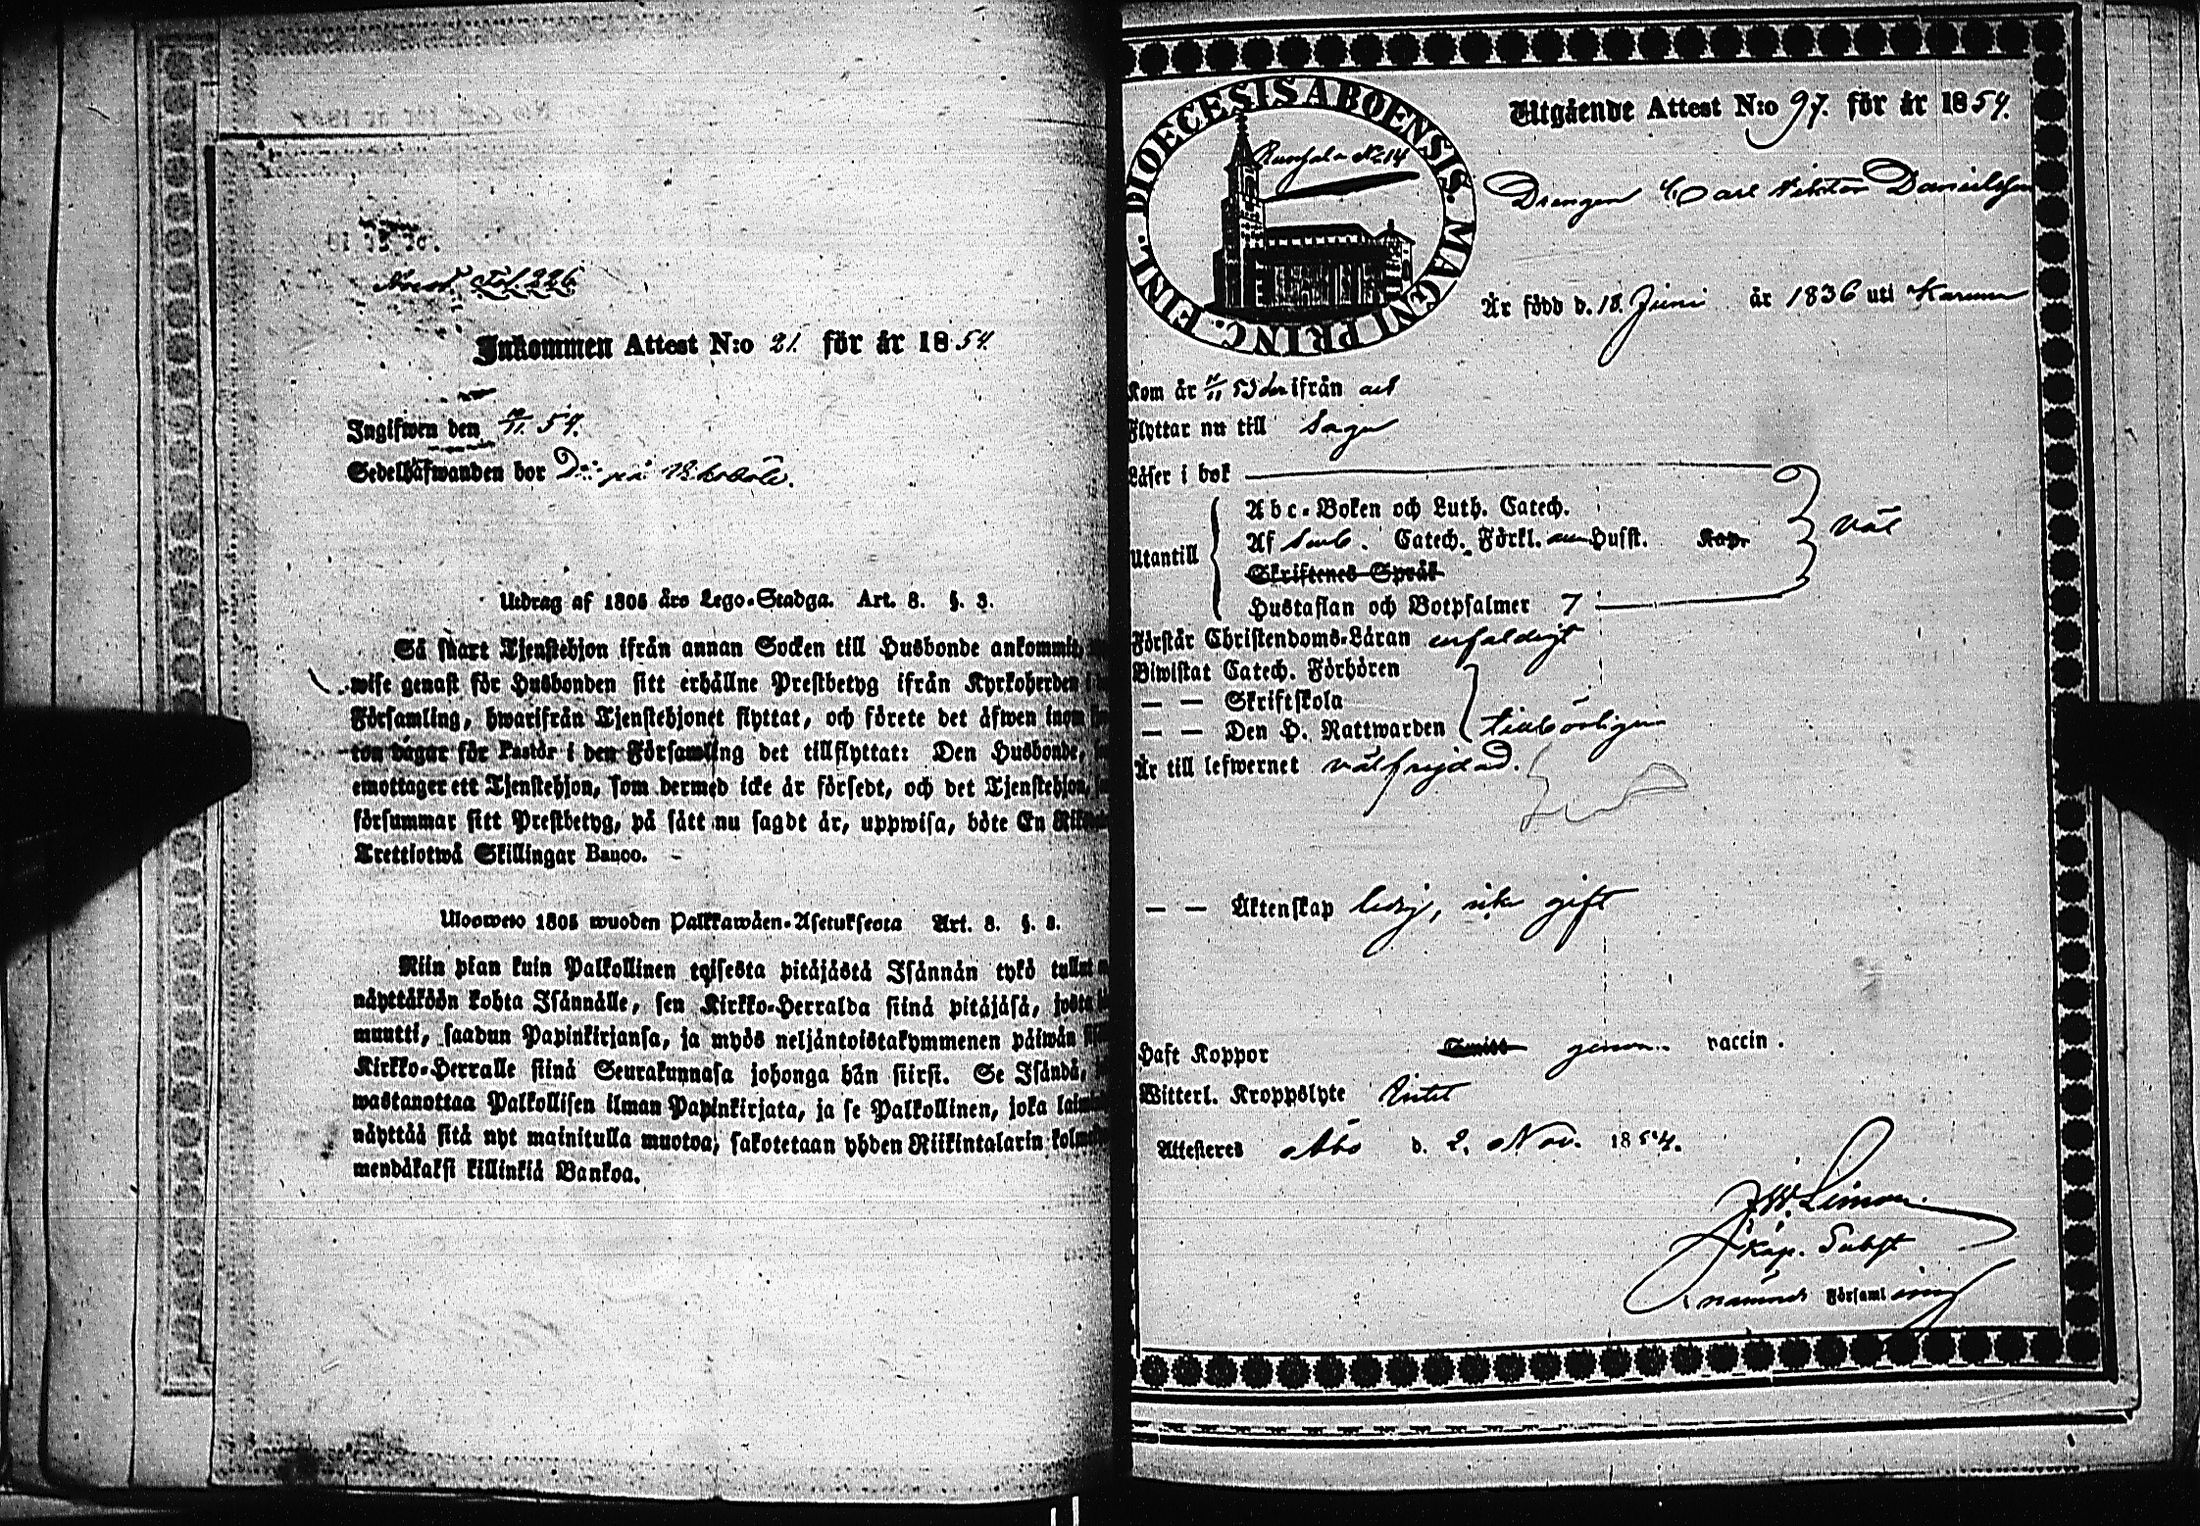 Fol. 226
Inkommen Attest N:o 21. för år 1854.
Ingifwen den 54.
Sedelhafwanden bor på
Utdrag af 1805 års Lego-Stadga. Art. 8. §. 3.
Så snart Tjenstehjon ifrån annan Socken till Husbonde ankommit,
wise genast för Husbonden sitt erhållne Prestbetyg ifrån Kyrkoherden
Församling, hwarifrån Tjenstehjonet flyttat, och förete det äfwen inom
ton dagar för Pastor i den Församling det tillflyttat: Den Husbonde,
emottager ett Tjenstehjon, som dermed icke är försedt, och det Tjenstehjon,
försummar sitt Prestbetyg, på sätt nu sagdt är, uppwisa, böte En
Trettiotwå Skillingar Banco.
Ulosweto 1805 wuoden Palkkawäen-Asetuksesta Art. 8. §. 3.
Niin pian kuin Palkollinen toisesta pitäjästä Isännän tykö tullut
näyttäköön kohta Isännälle, sen Kirkko-Herralda siinä pitäjäsä, josta
muutti, saadun Papinkirjansa, ja myös neljäntoistakymmenen päiwän
Kirkko-Herralle siinä Seurakunnasa johonga hän siirsi. Se Isändä,
wastanottaa Palkollisen ilman Papinkirjata, ja se Palkollinen, joka
näyttää sitä nyt mainitulla muotoa, sakotetaan yhden Riikintalarin
mendäkaksi killinkiä Bankoa.
DIOECESIS ABOENSIS. MAGNI PRINC. FINL.
No 14
Utgående Attest N:o 97. för år 1854.
Drengen Carl Viktor Danielsson
Är född d. 18. Juni år 1836 uti Karuna
Kom år 53 ifrån
Flyttar nu till Sagu
Läser i bok
Utantill
Abc-Boken och Luth. Catech.
Af Catech. Förkl. Husst. Kap.
Skriftenes Språk
Hustaflan och Botpsalmer 7
väl
Förstår Christendoms-Läran enfaldigt
Biwistat Catech. Förhören
— — Skriftskola
— — Den H. Nattwarden
tillbörligen
Är till lefwernet välfrejdad.
— — Äktenskap ledig, icke gift
Haft Koppor genom vaccin.
Witterl. Kroppslyte Intet
Attesteras Åbo d. 2. Nov. 1854.
J. W. Limon
Kap. Subst
Församling